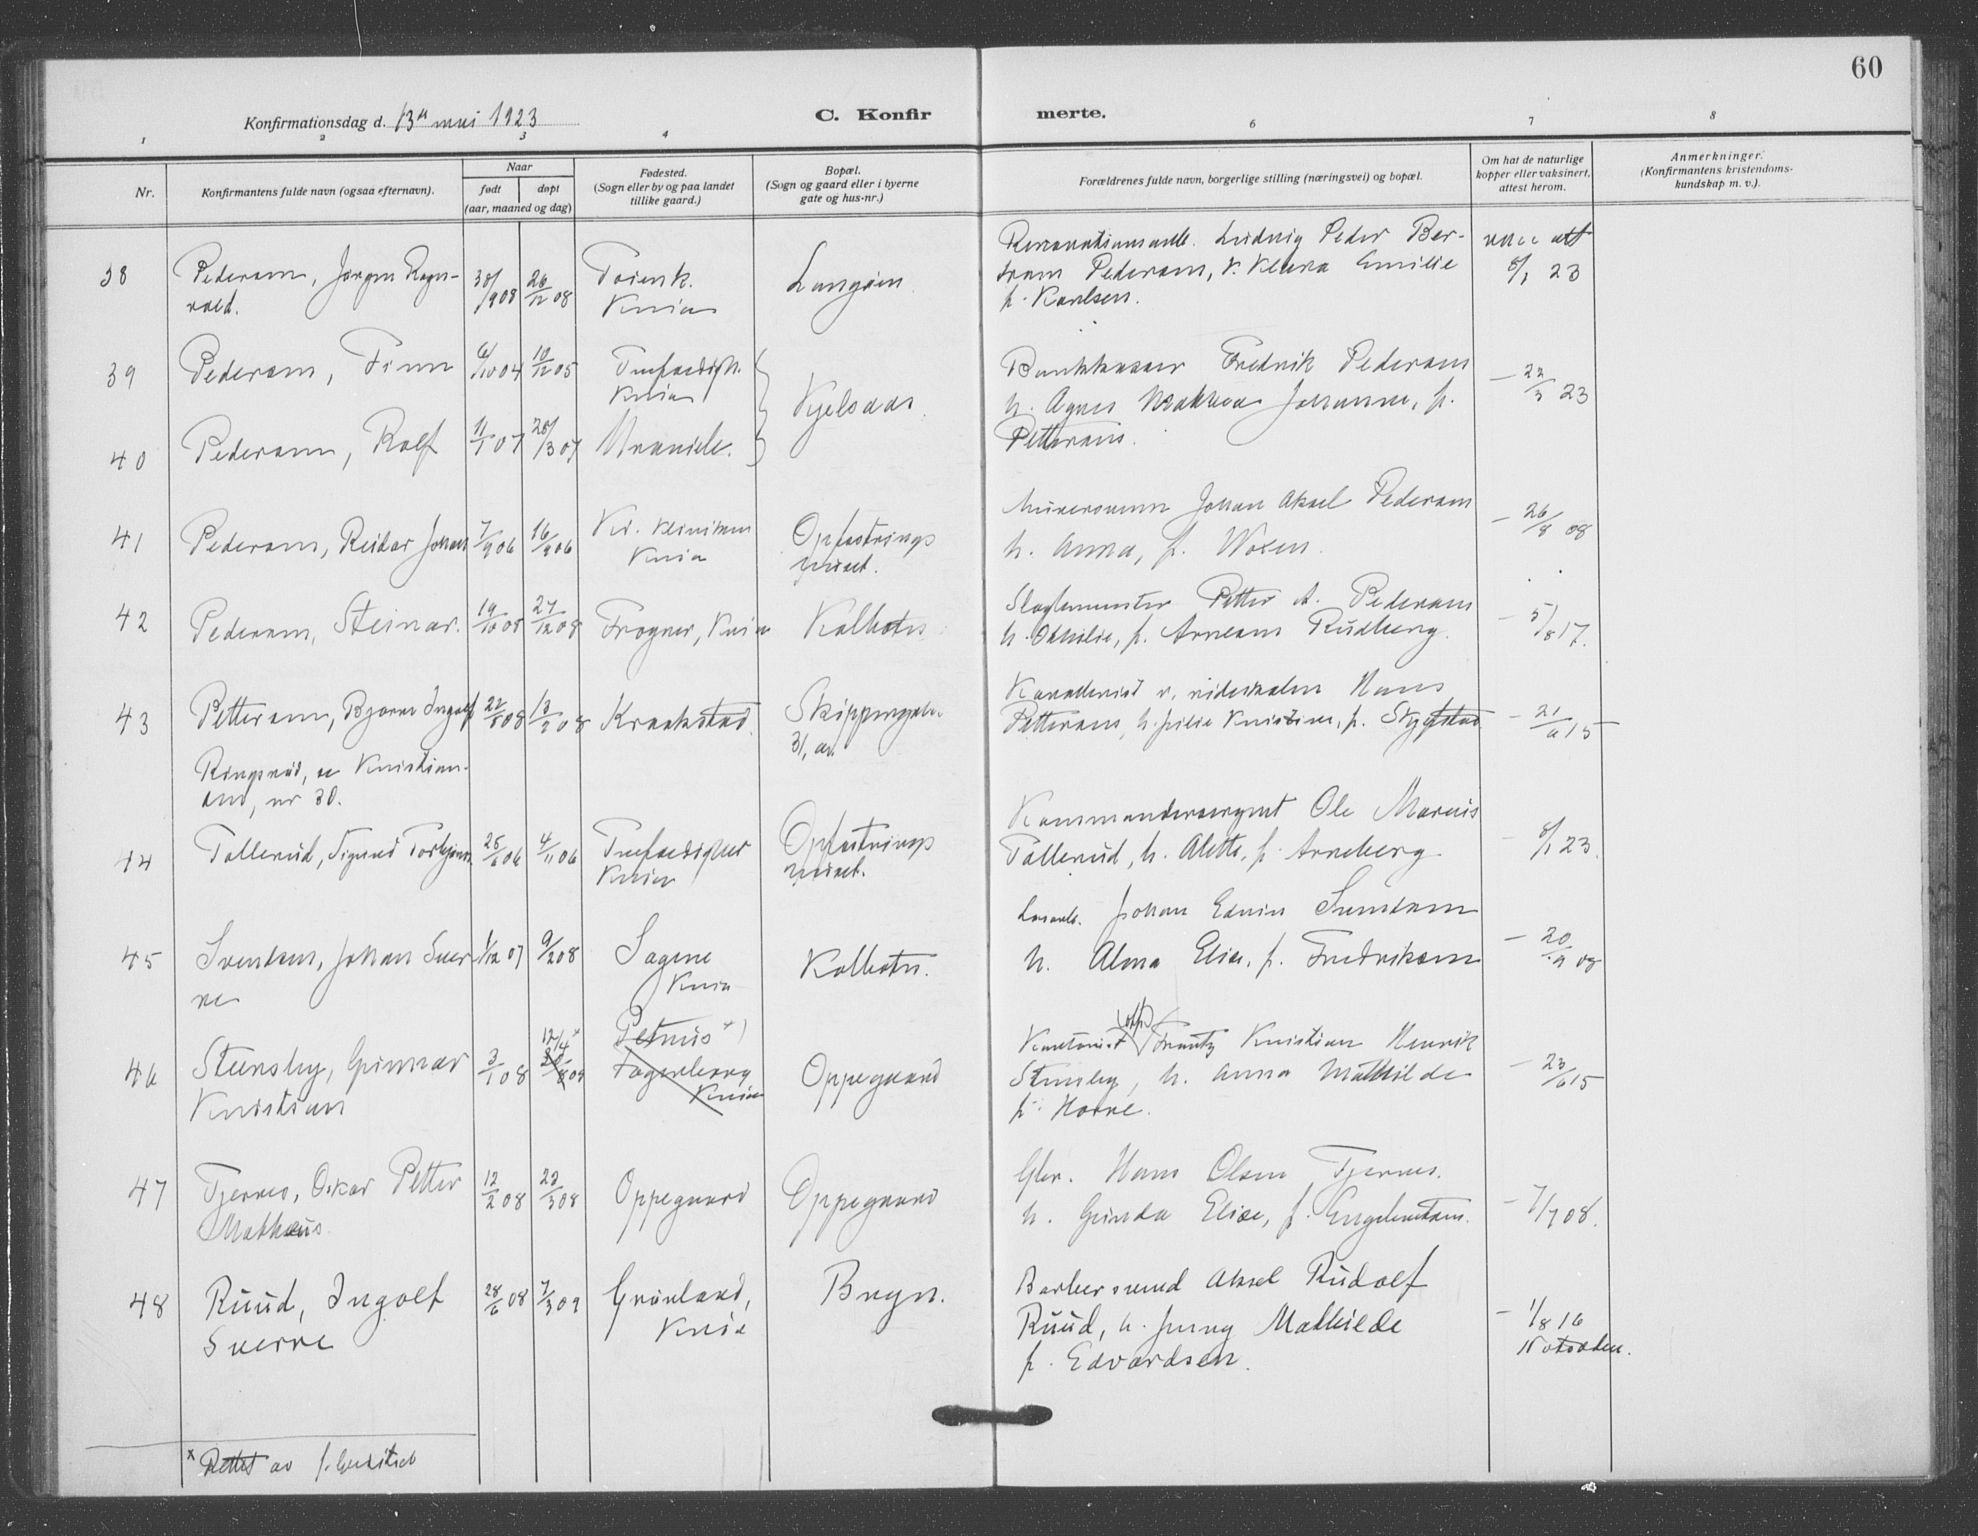 60
Konfirmationsdag d. 13de mai 1923
C. Konfir merte.
1 2 3 4 6 7 8
Nr.
Konfirmantens fulde navn (ogsaa efternavn).
Naar
født døpt
(aar, maaned og dag)
Fødested.
(Sogn eller by og paa landet
tillike gaard.)
Bopæl.
(Sogn og gaard eller i byerne
gate og hus-nr.)
Forældrenes fulde navn, borgerlige stilling (næringsvei) og bopæl.
Om hat de naturlige
kopper eller vaksinert,
attest herom.
Anmerkninger.
(Konfirmantens kristendoms-
kundskap m. v.).
38 Pedersen, Jørgen Ragn-
vald.
30/9 08 26/12 08
Kria
Langøien
Ludvig Peder Ber-
tram Pedersen, h. Klara Emilie
f. Karlsen.
vacc att
8/1 23
39 Pedersen, Finn
6/10 04 10/12 05
Trefoldigh.
Kria
Kjelsaas.
Bankkasser Fredrik Pedersen
h. Agnes Mathea Johanne, f.
Pettersen.
— 22/3 23
40 Pedersen, Rolf
11/1 07 28/3 07
Uranieb.
41 Pedersen, Reidar Johan
7/9 06 16/9 06
Kv. klinikken
Kria
Opfostrings
huset.
Murersvenn Johan Aksel Pedersen
h. Anna, f. Woxen.
— 26/8 08
42 Pedersen, Steinar.
19/10 08 27/12 08
Frogner, Kria
Kolbotn.
Slagtermester Petter A. Pedersen
h. Othilie, f. Arnesen Rudberg.
— 5/8 17.
43 Pettersen, Bjarne Ingolf
22/8 08 13/9 08
Kraakstad.
Skippergaten
31, Kria
Hans
Pettersen, h. Julie Kristine, f. Stygstad
— 21/6 15
Ringsrud, se Kristian-
sen, nr 30.
44 Tollerud, Sigurd Torbjørn
25/6 06 4/11 06
Trefoldighet
Kria
Opfostrings
huset.
Kommandersergent Ole Marius
Tollerud, h. Alette, f. Arneberg
— 8/1 23.
45 Svendsen, Johan Sver
re
1/12 07 9/2 08
Sagene
Kria
Kolbotn.
Johan Edvin Svendsen
h. Alma Elise, f. Fredriksen
— 20/9 08
46 Stensby, Gunnar
Kristian
3/1 08 12/4 x 09
Petrus x)
Fagerborg
Kria
Oppegaard
Kontorist Frantz Kristian Henrik
Stensby, h. Anna Mathilde
f. Horne.
— 23/6 15
47 Tjernes, Oskar Petter
Mathæus.
12/2 08 22/3 08
Oppegaard
Oppegaard
Gbr. Hans Olsen Tjernes.
h. Gunda Elise, f. Engebretsen.
— 7/7 08.
48 Ruud, Ingolf
Sverre
28/6 08 7/3 09
Grønland,
Kria
Bryn.
Barbersvend Aksel Rudolf
Ruud, h. Jenny Mathilde
f. Edvardsen.
— 1/8 16
Notodden.
x Rettet av